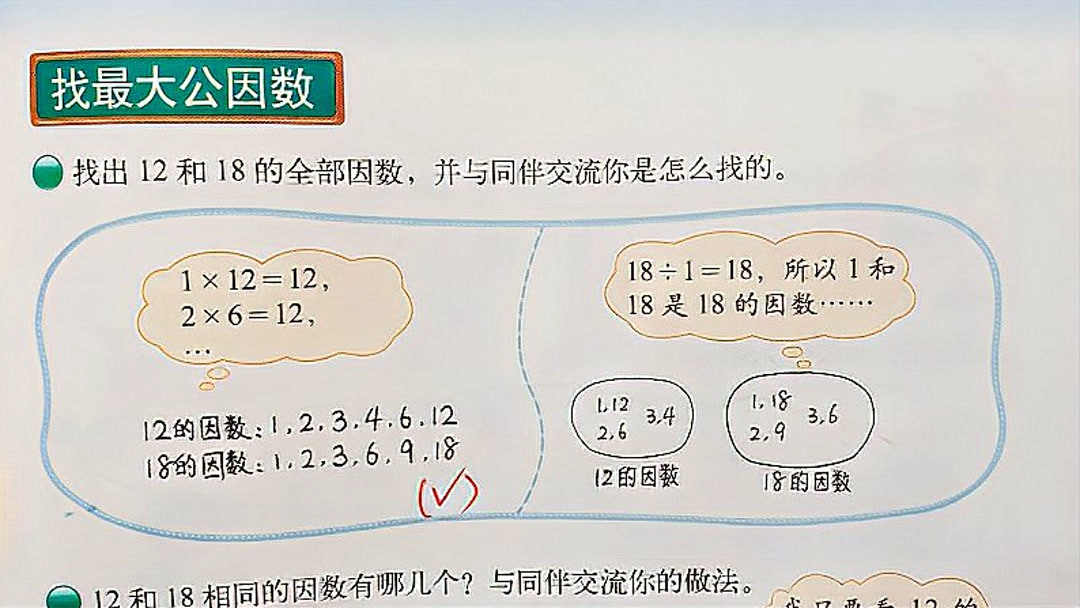 找最大公因数
找出 12 和 18 的全部因数，并与同伴交流你是怎么找的。
1×12=12，
2×6=12，
…
18÷1=18，所以 1 和
18 是 18 的因数……
12的因数:1,2,3,4,6,12
18的因数:1,2,3,6,9,18
(√)
1,12
3,4
2,6
12的因数
1,18
3,6
2,9
18的因数
12 和 18 相同的因数有哪几个？与同伴交流你的做法。
我只要看 12 的